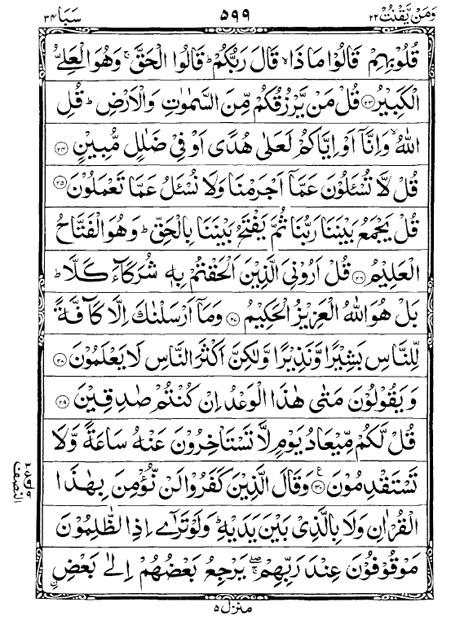 وَمَنۡ يَّقۡنُتۡ ۲۲ ۵۹۹ سَبَا ۳۴
قُلُوۡبِهِمۡ قَالُوۡا مَاذَا ۙ قَالَ رَبُّكُمۡ ؕ قَالُوا الۡحَقَّ ۚ وَهُوَ الۡعَلِىُّ
الۡكَبِيۡرُ ﴿۲۳﴾ قُلۡ مَنۡ يَّرۡزُقُكُمۡ مِّنَ السَّمٰوٰتِ وَالۡاَرۡضِ ؕ قُلِ
اللّٰهُ ۙ وَاِنَّاۤ اَوۡ اِيَّاكُمۡ لَعَلٰى هُدًى اَوۡ فِىۡ ضَلٰلٍ مُّبِيۡنٍ ﴿۲۴﴾
قُلْ لَّا تُسۡـَٔلُوۡنَ عَمَّاۤ اَجۡرَمۡنَا وَلَا نُسۡـَٔلُ عَمَّا تَعۡمَلُوۡنَ ﴿۲۵﴾
قُلۡ يَجۡمَعُ بَيۡنَنَا رَبُّنَا ثُمَّ يَفۡتَحُ بَيۡنَنَا بِالۡحَقِّ ؕ وَهُوَ الۡفَتَّاحُ
الۡعَلِيۡمُ ﴿۲۶﴾ قُلۡ اَرُوۡنِىَ الَّذِيۡنَ اَلۡحَقۡتُمۡ بِهٖ شُرَكَآءَ كَلَّا ؕ
بَلۡ هُوَ اللّٰهُ الۡعَزِيۡزُ الۡحَكِيۡمُ ﴿۲۷﴾ وَمَاۤ اَرۡسَلۡنٰكَ اِلَّا كَآفَّةً
لِّلنَّاسِ بَشِيۡرًا وَّنَذِيۡرًا وَّلٰكِنَّ اَكۡثَرَ النَّاسِ لَا يَعۡلَمُوۡنَ ﴿۲۸﴾
وَيَقُوۡلُوۡنَ مَتٰى هٰذَا الۡوَعۡدُ اِنۡ كُنۡتُمۡ صٰدِقِيۡنَ ﴿۲۹﴾
قُلْ لَّكُمۡ مِّيۡعَادُ يَوۡمٍ لَّا تَسۡتَاۡخِرُوۡنَ عَنۡهُ سَاعَةً وَّلَا
تَسۡتَقۡدِمُوۡنَ ﴿۳۰﴾ ع وَقَالَ الَّذِيۡنَ كَفَرُوۡا لَنۡ نُّؤۡمِنَ بِهٰذَا
الۡقُرۡاٰنِ وَلَا بِالَّذِىۡ بَيۡنَ يَدَيۡهِ ؕ وَلَوۡ تَرٰٓى اِذِ الظّٰلِمُوۡنَ
مَوۡقُوۡفُوۡنَ عِنۡدَ رَبِّهِمۡ ۖۚ يَرۡجِعُ بَعۡضُهُمۡ اِلٰى بَعۡضِ
منزل ۵